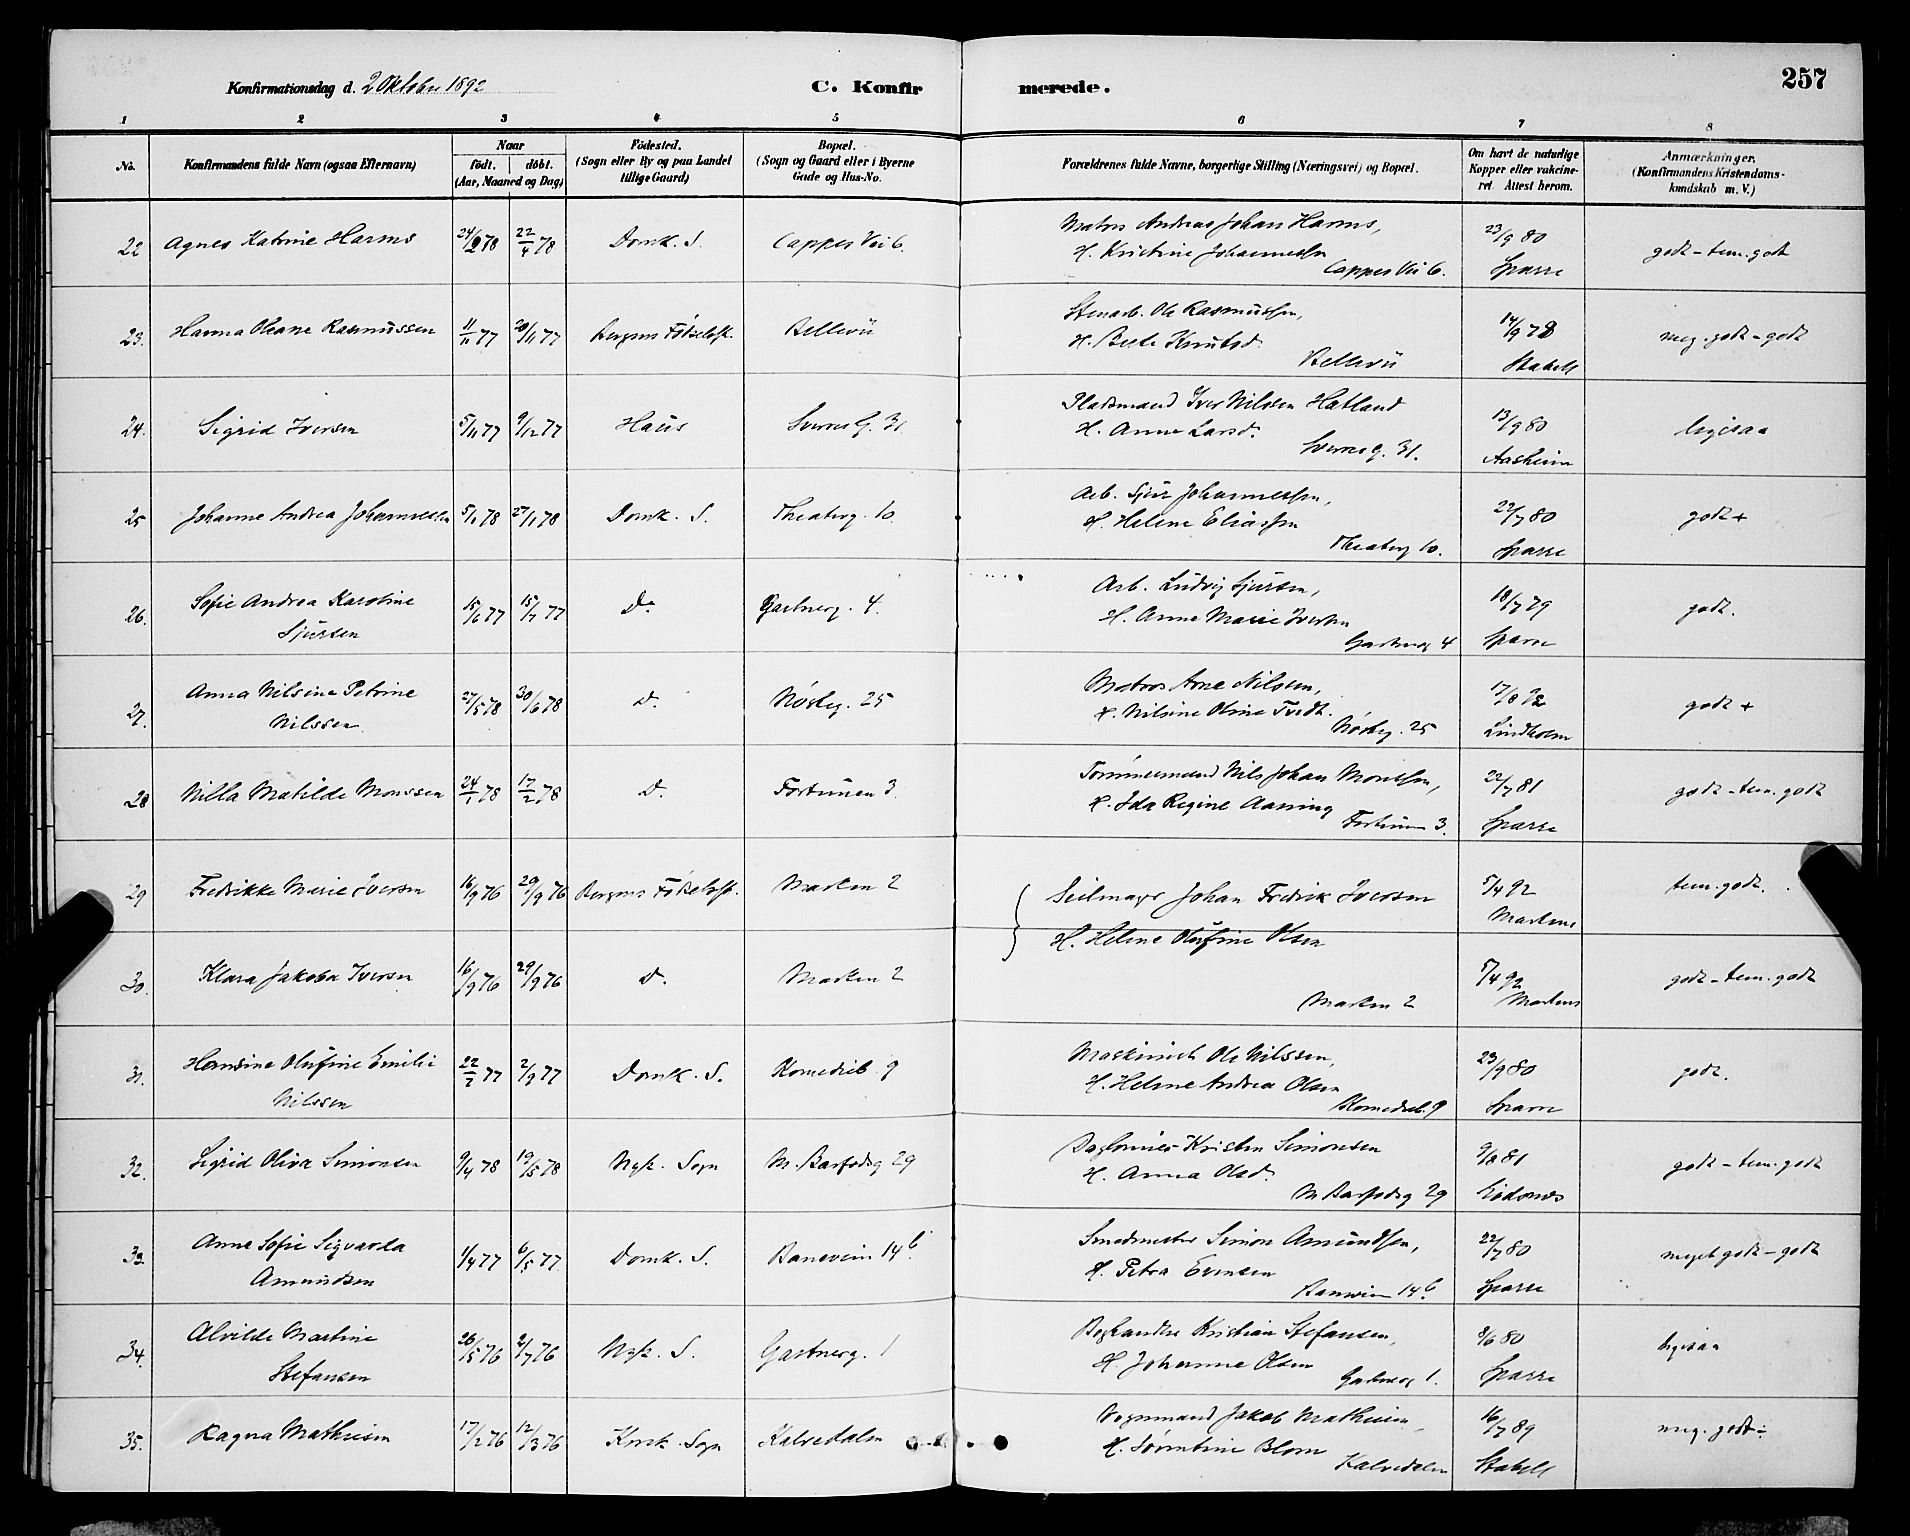 257
Konfirmationsdag d. 2 Oktober 1892 C. Konfirmerede.
1 2 3 4 5 6 7 8
No. Konfirmandens fulde Navn (ogsaa Efternavn) Naar födt. döbt. (Aar, Maaned og Dag) Födested. (Sogn eller By og paa Landet tillige Gaard) Bopæl. (Sogn og Gaard eller i Byerne Gade og Hus-No. Forældrenes fulde Navne, borgerlige Stilling (Næringsvei) og Bopæl. Om havt de naturlige Kopper eller vakcineret. Attest herom. Anmærkninger. (Konfirmandens Kristendomskundskab m. V.)
22 Agnes Katrine Harms 24/2 78 22/4 78 Domk. S. Cappes Vei 6. Matros Andreas Johan Harms, 23/9 80 godt - tem. godt
H. Kristine Johannessen
Cappes Vei 6. Sparre
23. Hanna Oleane Rasmussen 11/11 77 20/11 77 Bergens Födselsst. Bellevü Stenarb. Ole Rasmussen, 14/9 78 meg. godt - godt
H. Beate Knutsd.
Bellevü Stabell
24. Sigrid Iversen 5/11 77 9/12 77 Haus Sverres G. 31 Pladsmand Iver Nilssen Hatland 13/9 80 ligesaa
H. Anna Larsd.
Sverres g. 31. Aasheim
25 Johanne Andrea Johannessen 5/1 78 27/1 78 Domk. S. Theaterg. 10 Arb. Sjur Johannessen, 22/7 80 godt +
H. Helene Eliassen
Theaterg 10. Sparre
26. Sofie Andrea Karoline Sjursen 15/6 77 15/7 77 Do Gartnerg. 4. Arb. Ludvig Sjursen, 18/7 79 godt.
H. Anne Marie Iversen
Gartnerg 4 Sparre
27. Anna Nilsine Petrine Nilssen 27/5 78 30/6 78 D. Nösteg. 25 Matros Arne Nilssen, 17/8 92 godt +
H. Nilsine Oline Tvedt.
Nösteg. 25 Lindholm
28 Nilla Matilde Monssen 24/1 78 17/2 78 D. Fortunen 3. Tömmermand Nils Johan Monssen, 22/7 81 godt - tem. godt
H. Ida Regine Aaning
Fortunen 3. Sparre
29 Fredrikke Marie Iversen 16/9 76 29/9 76 Bergens Födselsst. Marken 2 Seilmager Johan Fredrik Iversen 5/4 92 tem. godt.
H. Helene Olufine Olsen Martens
30. Klara Jakoba Iversen 16/9 76 29/9 76 D. Marken 2 5/4 92 godt - tem. godt
Marken 2 Martens
31. Hansine Olufine Emilie Nilssen 22/7 77 2/9 77 Domk. S. Komedieb. 9 Maskinist Ole Nilssen, 23/9 80 godt.
H. Helene Andrea Olsen
Komedieb. 9 Sparre
32. Sigrid Oliva Simonsen 9/4 78 19/5 78 Nyk. Sogn M. Barfodsg 29 Daglönner Kristen Simonsen 9/8 81 godt - tem. godt
H. Anna Olsd.
M Barfodsg 29 Eidsnes
33 Anne Sofie Sigvarda Amundsen 1/4 77 6/5 77 Domk. S. Baneveien 14 b. Smedmester Simon Amundsen, 22/7 80 meget godt - godt
H. Petra Evensen
Baneveien 14 b. Sparre
34. Alvilde Martine Stefansen 26/5 76 2/7 76 Nyk. S. Gartnerg. 1 Boghandler Kristian Stefansen, 8/6 80 ligesaa
H. Johanne Olsen
Gartnerg 1. Sparre
35. Ragna Mathiesen 17/2 76 12/3 76 Korsk. Sogn Kalvedalen Vognmand Jakob Mathiesen, 16/7 89 meg. godt ÷
H. Sörentine Blom
Kalvedalen Stabell